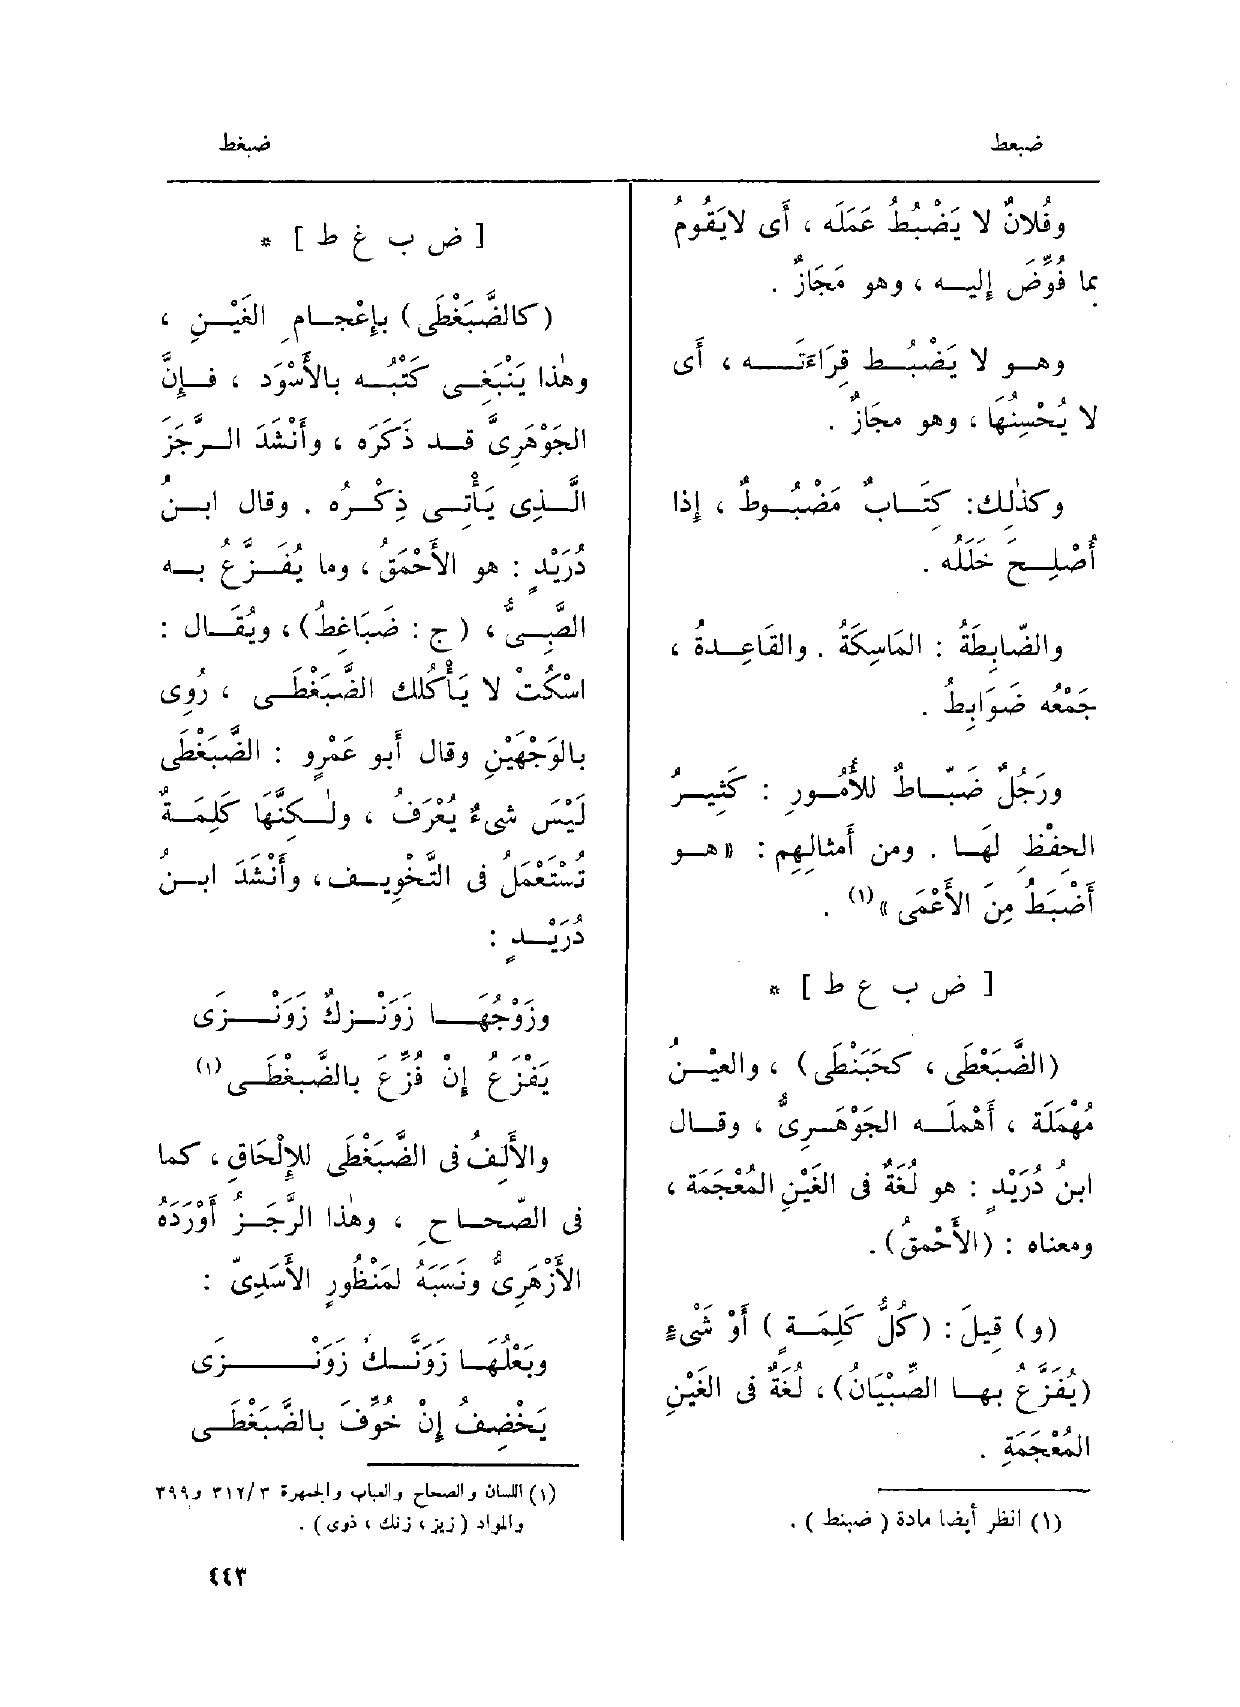 ضبعط
ضبغط
وفُلانٌ لا يَضْبُطُ عَمَلَه ، أَى لايَقُومُ
بما فُوِّضَ إليــه ، وهو مَجَازٌ .
وهــو لا يَضْبُــط قِرَاءَتَــه ، أَى
لا يُحْسِنُهَا ، وهو مجَازٌ .
وكذٰلِك: كِتَــابٌ مَضْبُــوطٌ ، إذا
أُصْلِــحَ خَلَلُه .
والضّابِطَةُ : المَاسِكَةُ . والقَاعِــدةُ ،
جَمْعُه ضَوَابِطُ .
ورَجُلٌ ضَبّــاطٌ للأُمُــورِ : كَثِيــرُ
الحِفْظِ لَهــا . ومن أَمثالِهِم : «هــو
أَضْبَطُ مِنَ الأَعْمَى »(١) .
[ ض ب ع ط ] *
(الضَّبَعْطَى ، كحَبَنْطَى) ، والعَيْــنُ
مُهْمَلَة ، أَهْمَلــه الجَوْهَــرِىُّ ، وقــال
ابنُ دُرَيْدٍ : هو لُغَةٌ فى الغَيْنِ المُعْجَمَة ،
ومعناه : (الأَحْمقُ).
(و) قِيلَ : (كُلُّ كَلِمَــةٍ ) أَوْ شَىْءٍ
(يُفَزَّعُ بهــا الصِّبْيَانُ) ، لُغَةٌ فى الغَيْنِ
المُعْجَمَةِ .
(١) انظر أيضا مادة ( ضبنط ) .
[ ض ب غ ط ] *
(كالضَّبَغْطَى) بإعْجــامِ الغَيْــنِ ،
وهٰذا يَنْبَغِــى كَتْبُــه بالأَسْوَد ، فــإِنَّ
الجَوْهَرِىَّ قــد ذَكَرَه ، وأَنْشَدَ الــرَّجَزَ
الَّــذِى يَأْتِــى ذِكْــرُه . وقال ابــنُ
دُرَيْدٍ : هو الأَحْمَقُ ، وما يُفَــزَّعُ بــه
الصَّبِــىُّ ، (ج : ضَبَاغِطُ) ، ويُقَــال :
اسْكُتْ لا يَــأْكُلك الضَّبَغْطَــى ، رُوِى
بالوَجْهَيْنِ وقال أَبو عَمْرٍو : الضَّبَغْطَى
لَيْسَ شىءٌ يُعْرَفُ ، ولٰــكِنَّهَا كَلِمَــةٌ
تُسْتَعْمَلُ فى التَّخْوِيــف ، وأَنْشَدَ ابــن
دُرَيْــدٍ :
وزَوْجُهَــا زَوَنْــزكٌ زَوَنْــزى
يَفْزَعُ إنْ فُزِّعَ بالضَّبَغْطَــى(١)
والأَلِفُ فى الضَّبَغْطَى للإِلْحَاقِ ، كما
فى الصّحــاحِ ، وهٰذا الرَّجَــزُ أَوْرَدَهُ
الأَزْهَرِىُّ ونَسَبَهُ لمَنْظُورٍ الأَسَدِىّ :
وبَعْلُهَــا زَوَنَّــكٌ زَوَنْــزى
يَخْضِفُ إنْ خُوِّفَ بالضَّبَغْطَــى
(١) اللسان والصحاح والعباب والجمهرة ٣١٢/٣ و٣٩٩
والمواد ( زيز ، زنك ، ذوى ) .
٤٤٣